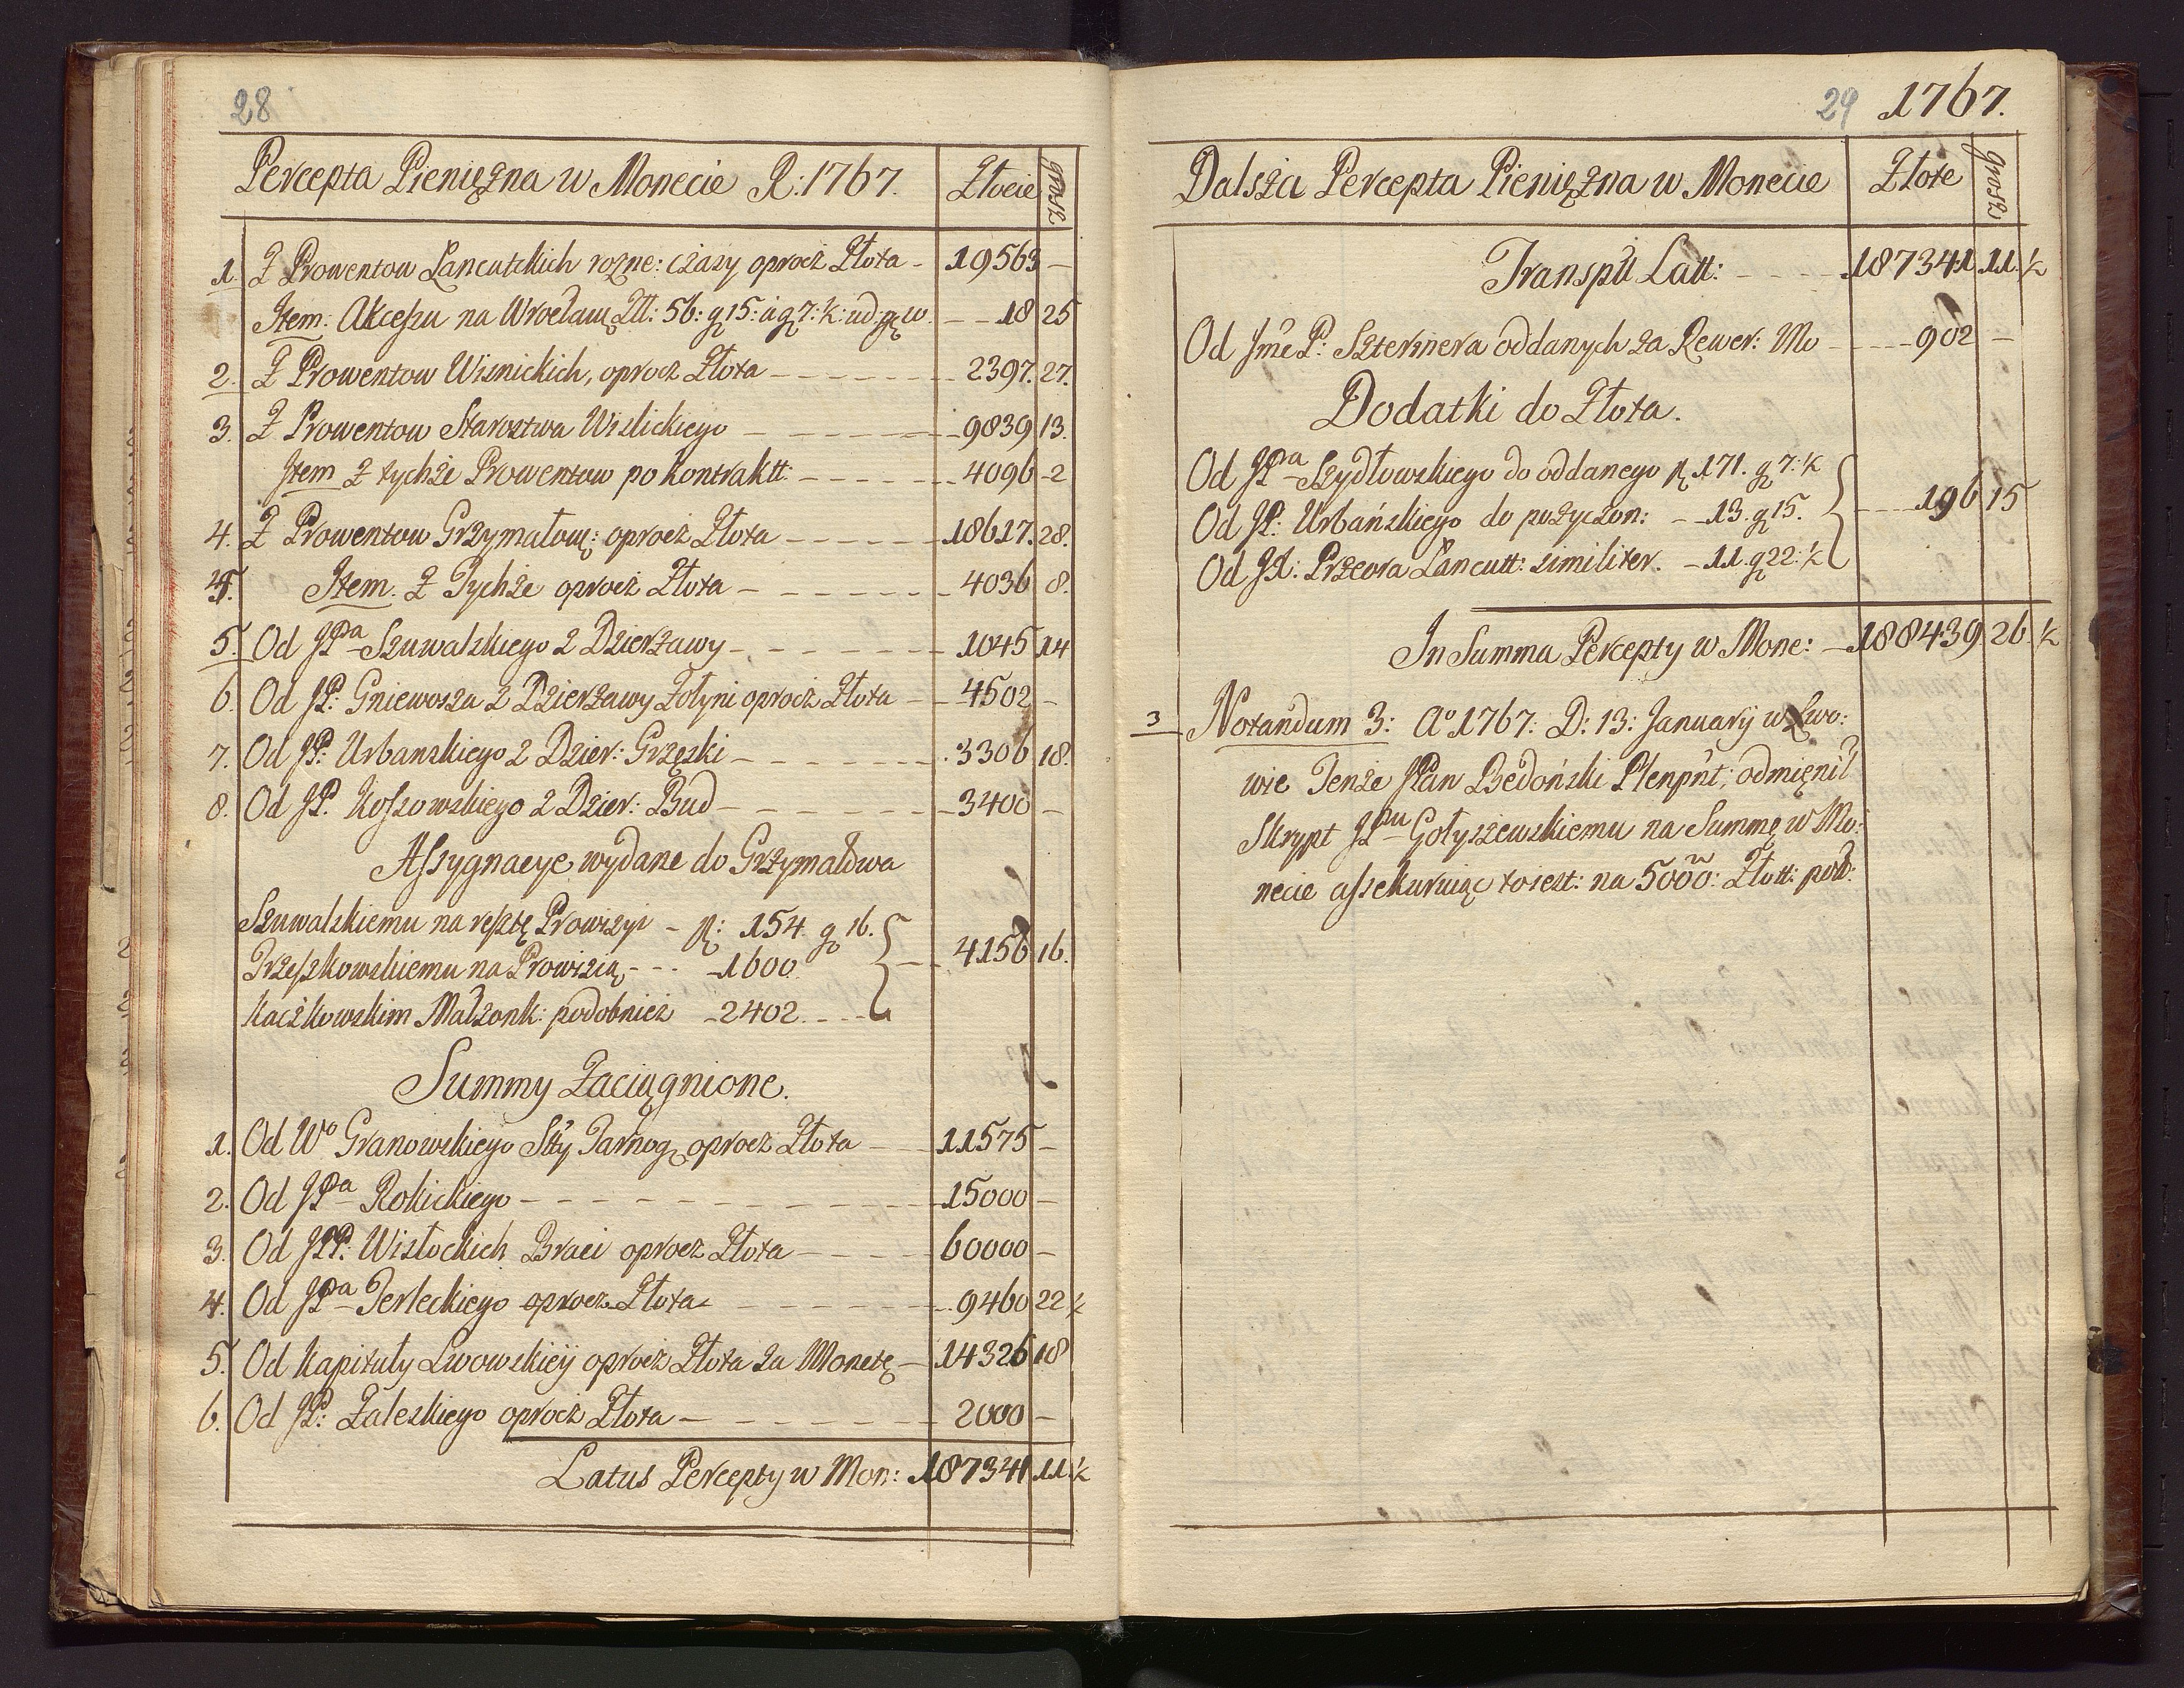 28
Percepta Pieniężna w Monecie R: 1767. Złocie grosz
1. Z Prowentow Lancutskich rozne: czasy oprocz Złota - 19563 -
Item: Akcessu na Wrocławę Zll: 56: g 15: à g 7: ½: - - 18 25
2. Z Prowentow Wisnickich, oprocz Złota - - - 2397. 27.
3. Z Prowentow Starostwa Wislickiego - - - 9839 13.
Item z tychże Prowentow po kontraktt: - - - 4096 - 2
4. Z Prowentow Grzymałow: oprocz Złota - - - 18617. 28.
Item. Z Tychże oprocz Złota - - - 4036 8.
5. Od JPa Szuwalskiego z Dzierżawy - - - 1045 14
6. Od JP: Gniewosza z Dzierżawy Żołyni oprocz Złota - - 4502 -
7. Od JP: Urbanskiego z Dzier: Grzęski - - - 3306 18.
8. Od JP. Kossowskiego z Dzier: Bud - - - 3400 -
Assygnacye wydane do Grzymałowa
Szuwalskiemu na resztę Prowizyi - fl: 154 g 16.
Trzeszkowskiemu na Prowizią - - - 1600 - - 4156 16.
Kaczkowskim Małżonk: podobnież - 2402 - - -
Summy Zaciągnione.
1. Od Wo Granowskiego Stty Tarnog. oprocz Złota - - 11575 -
2. Od JPa Rokickiego - - - 15000 -
3. Od JPP: Wisłockich Braci oprocz Złota - - - 60000 -
4. Od JPa Terleckiego oprocz Złota - - - 9460 22 ½
5. Od Kapituły Lwowskiey oprocz Złota za Monetę - 14326 18
6. Od JP: Zaleskiego oprocz Złota - - - 2000 -
Latus Percepty w Mon: 187341 11. ½
29 1767.
Dalsża Percepta Pieniężna w Monecie Złote grosz
Transpŭ Latt: - - - 187341. 11. ½
Od Jme P: Szterinera oddanych za Rewer: Mo - - - 902 -
Dodatki do Złota.
Od JPa Szydłowskiego do oddanego fl 171. g 7: ½
Od JP: Urbańskiego do pożyczon: - - 13. g 15. - - - 196 15
Od JX: Przeora Lancutt: similiter. - 11. g 22: ½
In Summa Percepty w Mone: - 188439. 26. ½
3 Notandum 3: Ao 1767: D: 13: January w Lwo:
wie Tenże JPan Bedoński Plenpnt: odmięnił
Skrypt JPnu Gołyszewskiemu na Summę w Mo:
necie assekuruiąc to iest: na 5000: Złott: pol: